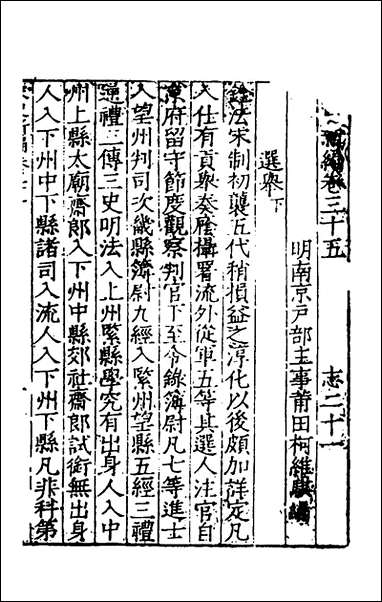 編卷三十五 志二十一
明南京戶部主事莆田柯維騏編
選舉下
銓法宋制初襲五代稍損益之淳化以後頗加詳定凡
入仕有貢舉奏廕攝署流外從軍五等其選人注官自
府留守節度觀察判官下至令錄簿尉凡七等進士
入望州判司次畿縣簿尉九經入緊州望縣五經三禮
通禮三傳三史明法入上州緊縣學究有出身人入中
州上縣太廟齋郎入下州中縣郊社齋郎試銜無出身
人入下州中下縣諸司入流人入下州下縣凡非科第